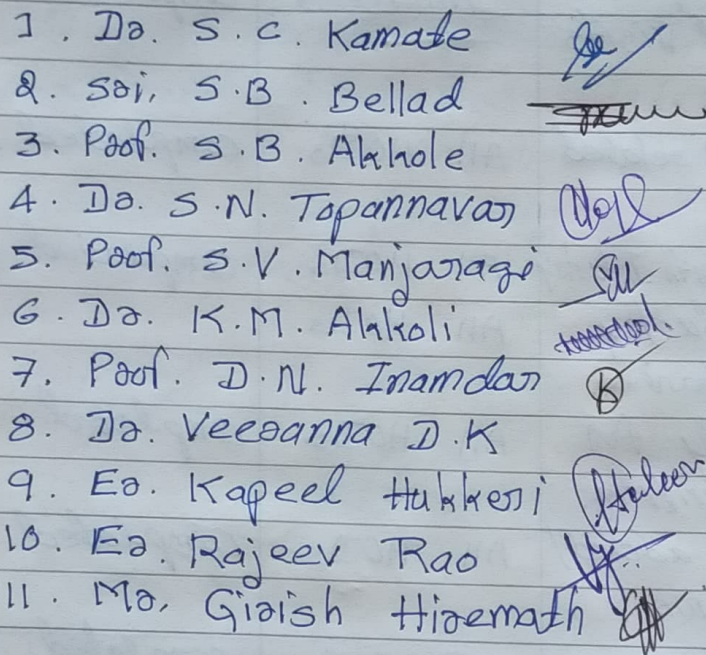 1. Dr. S.C. Kamate
2. Sri. S.B. Bellad
3. Prof. S.B. Akkole
4. Dr. S.N. Topannavar
5. Prof. S.V. Manjaragi
6. Dr. K.M. Akkoli
7. Prof. D.N. Inamdar
8. Dr. Veeranna D.K
9. Er. Kapeel Hukkeri
10. Er. Rajeev Rao
11. Mr. Girish Hiremath